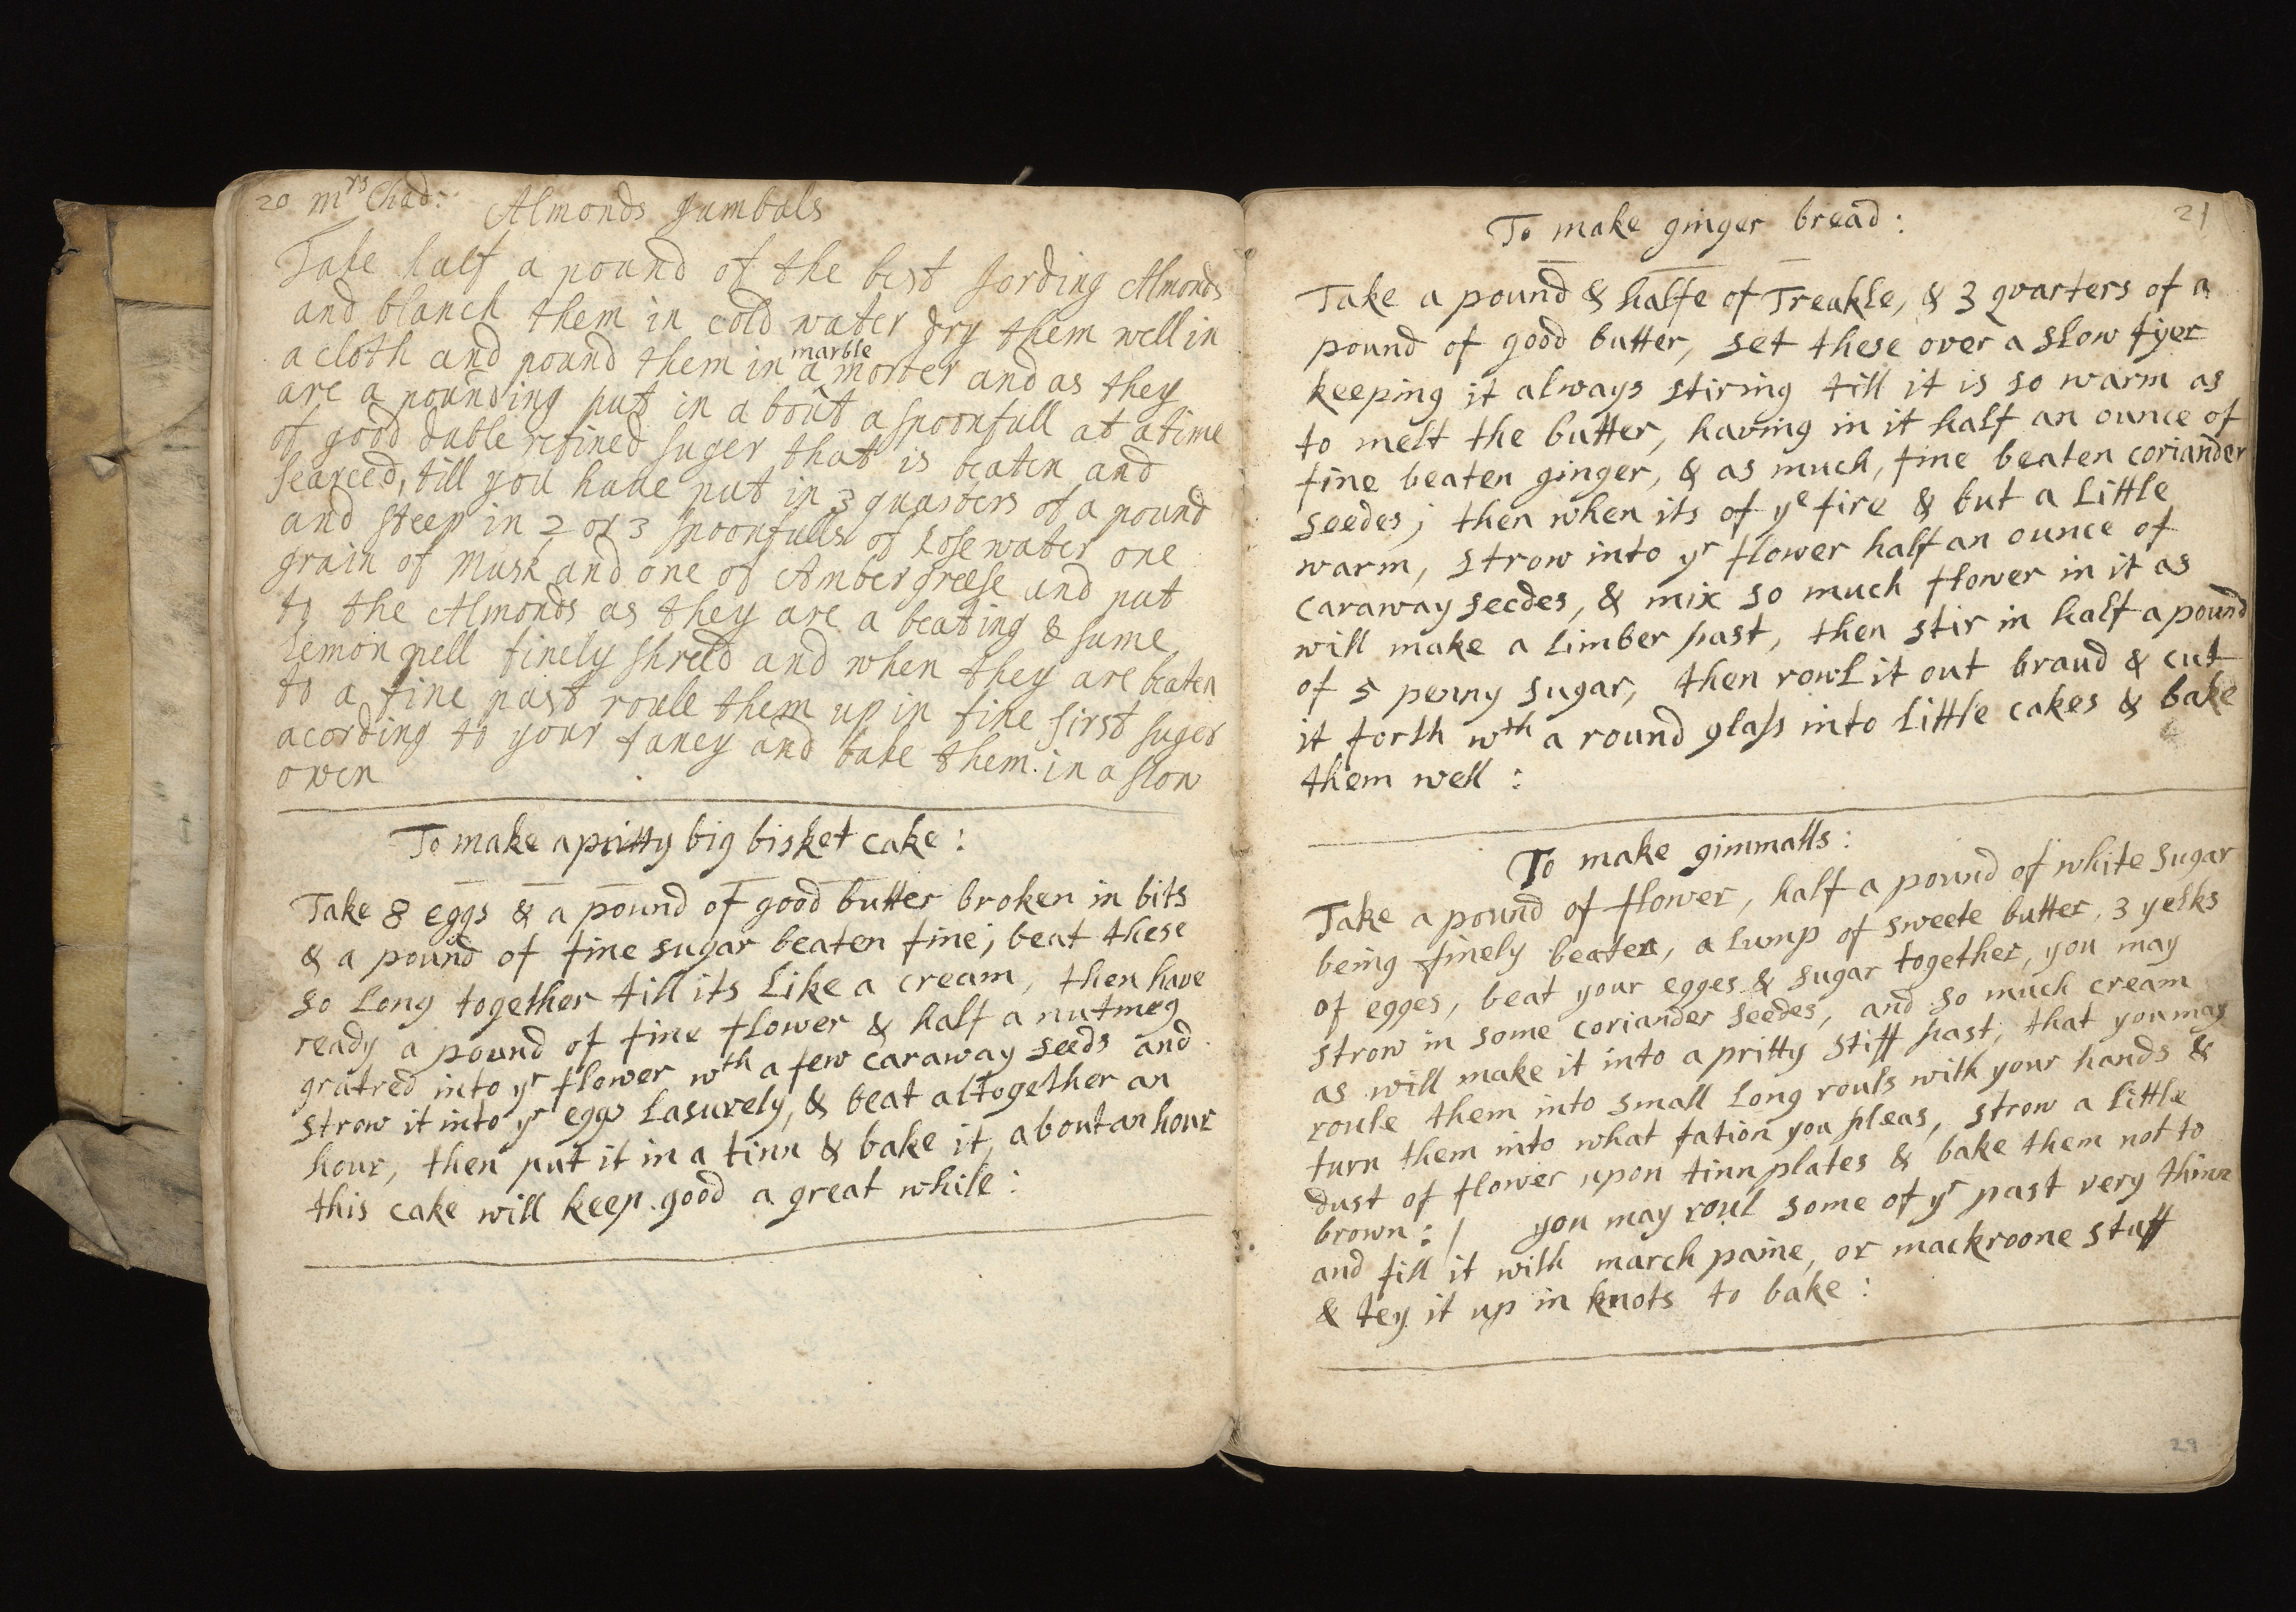 20 mrs Chad: Almonds Jumbals
Take half a pound of the best Jording Almonds
and blanch them in cold water dry them well in
a cloth and pound them in a marble morter and as they
are a pounding put in about a spoonfull at a time
of good duble refined suger that is beaten and
searced, till you have put in 3 quarters of a pound
and steep in 2 or 3 spoonfulls of Rose water one
grain of Musk and one of Amber greese and put
to the Almonds as they are a beating & sume
Lemon pell finely shreed and when they are beaten
to a fine past roule them up in fine sirst suger
acording to your fancy and bake them in a slow
oven
To make a pritty big bisket cake:
Take 8 eggs & a pound of good butter broken in bits
& a pound of fine sugar beaten fine; beat these
so Long together till its Like a cream, then have
ready a pound of fine flower & half a nutmeg
gratred into yr flower wth a few caraway seeds and
strow it into yr eggs Lasurely, & beat altogether an
hour, then put it in a tinn & bake it, about an hour
this cake will keep good a great while:
21
To make ginger bread:
Take a pound & halfe of Treakle, & 3 quarters of a
pound of good butter, set these over a slow fyer
keeping it always stiring till it is so warm as
to melt the butter, having in it half an ounce of
fine beaten ginger, & as much, fine beaten coriander
seedes; then when its of ye fire & but a Little
warm, strow into yr flower half an ounce of
caraway seedes, & mix so much flower in it as
will make a Limber past, then stir in half a pound
of 5 penny sugar, then rowl it out braud & cut
it forth wth a round glass into Little cakes & bake
them well:
To make gimmalls:
Take a pound of flower, half a pound of white sugar
being finely beaten, a Lump of sweete butter, 3 yelks
of egges, beat your egges & sugar together, you may
strow in some coriander seedes, and so much cream
as will make it into a pritty stiff past, that you may
roule them into small Long rouls with your hands &
turn them into what fation you pleas, strow a Little
dust of flower upon tinn plates & bake them not to
brown: / you may roul some of yr past very thinn
and fill it with march paine, or mackroone stuff
& tey it up in knots to bake:
29